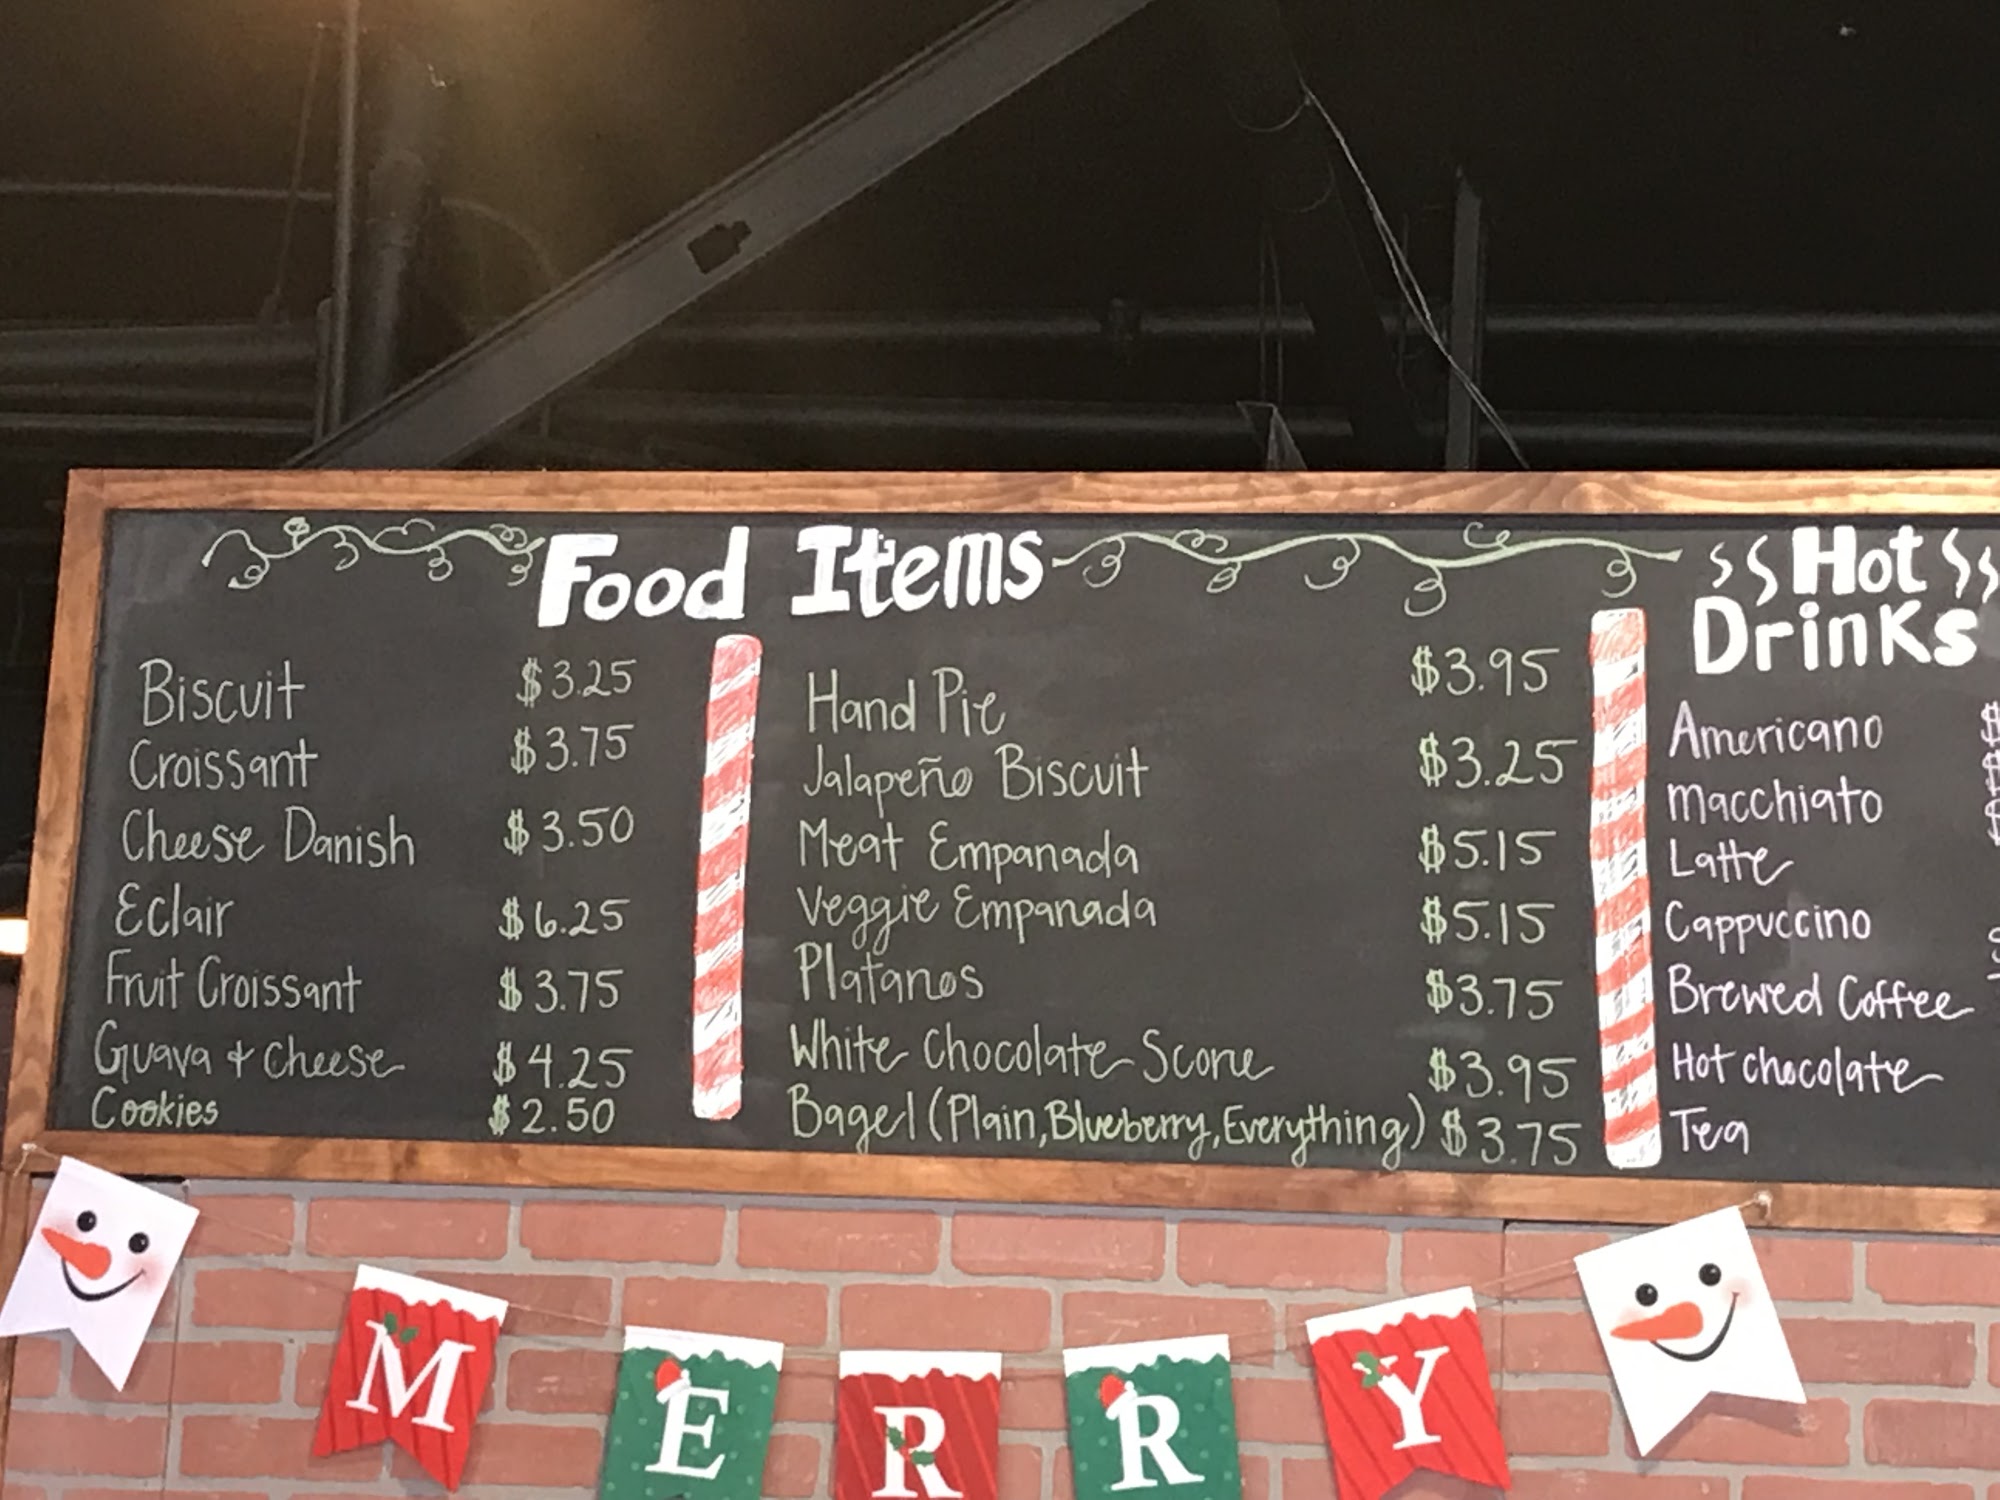 Food Items
Biscuit $3.25
Croissant $3.75
Cheese Danish $3.50
Eclair $6.25
Fruit Croissant $3.75
Guava + Cheese $4.25
Cookies $2.50
Hand Pie $3.95
Jalapeño Biscuit $3.25
Meat Empanada $5.15
Veggie Empanada $5.15
Platanos $3.75
White Chocolate Scone $3.95
Bagel (Plain, Blueberry, Everything) $3.75
Hot
Drinks
Americano $
Macchiato $
Latte $
Cappuccino
Brewed Coffee
Hot chocolate
Tea
MERRY